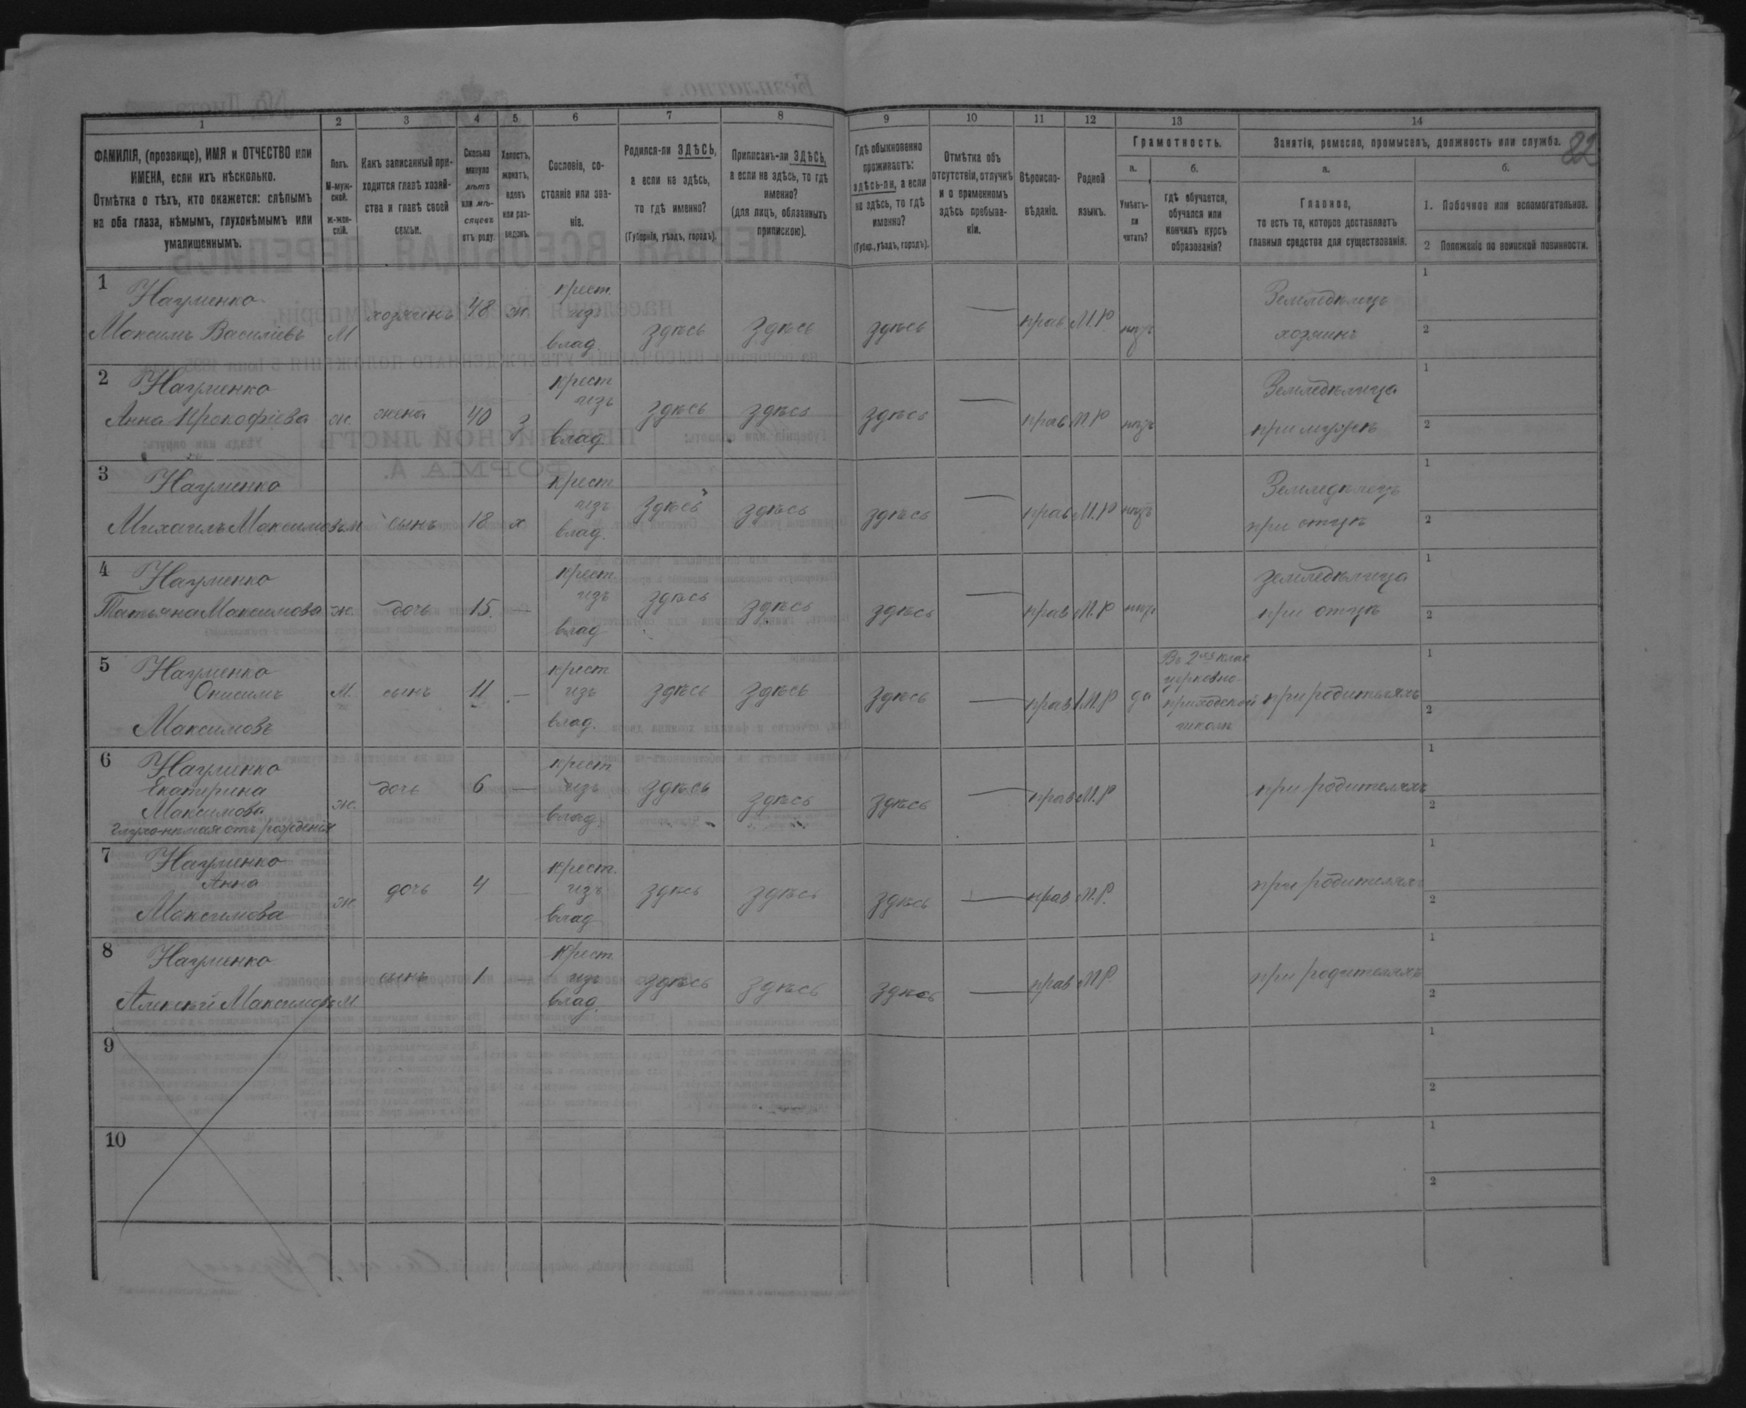 22
1 2 3 4 5 6 7 8 9 10 11 12 13 14
ФАМИЛІЯ, (прозвище), ИМЯ и ОТЧЕСТВО или
ИМЕНА, если ихъ нѣсколько.
Отмѣтка о тѣхъ, кто окажется: слѣпымъ
на оба глаза, нѣмымъ, глухонѣмымъ или
умалишеннымъ.
Полъ.
М-муж-
ской.
ж-жен-
скій.
Какъ записанный при-
ходится главѣ хозяй-
ства и главѣ своей
семьи.
Сколько
минуло
лѣтъ
или мѣ-
сяцевъ
отъ роду
Холостъ,
женатъ,
вдовъ
или раз-
веденъ.
Сословіе, со-
стояніе или зва-
ніе.
Родился-ли ЗДѢСЬ,
а если не здѣсь,
то гдѣ именно?
(Губернія, уѣздъ, городъ).
Приписанъ-ли ЗДѢСЬ,
а если не здѣсь, то гдѣ
именно?
(для лицъ, обязанныхъ
припискою).
Гдѣ обыкновенно
проживаетъ:
здѣсь-ли, а если
не здѣсь, то гдѣ
именно?
(Губер., уѣздъ, городъ).
Отмѣтка объ
отсутствіи, отлучкѣ
и о временномъ
здѣсь пребыва-
ніи.
Вѣроиспо-
вѣданіе.
Родной
языкъ.
Грамотность.
а.
Умѣетъ-
ли
читать?
б.
гдѣ обучается,
обучался или
кончилъ курсъ
образованія?
Занятіе, ремесло, промыселъ, должность или служба.
а.
Главное,
то есть то, которое доставляетъ
главныя средства для существованія.
б.
1. Побочное или вспомогательное.
2 Положеніе по воинской повинности.
1 Науменко
Максимъ Василіевъ М хозяинъ 48 ж крест. из влад здѣсь здѣсь здѣсь — прав М.Р нѣтъ Земледѣлецъ хозяинъ 1 2
2 Науменко
Анна Прокофіева ж жена 40 з крест изъ влад здѣсь здѣсь здѣсь — прав М.Р нѣтъ Земледѣлица при мужѣ 1 2
3 Науменко
Михаилъ Максимовъ м сынъ 18 х крест изъ влад. здѣсь здѣсь здѣсь — прав М.Р нѣтъ Земледѣлецъ при отцѣ 1 2
4 Науменко
Татьяна Максимова ж. дочь 15 — крест изъ влад здѣсь здѣсь здѣсь — прав М.Р нѣтъ земледѣлица при отцѣ 1 2
5 Науменко
Онисимъ
Максимовъ М. сынъ 11 — крест изъ влад. здѣсь здѣсь здѣсь — прав М.Р да Въ 2мъ клас церковно-приходской школѣ при родителяхъ 1 2
6 Науменко
Екатерина
Максимова
глухонѣмая отъ рожденія ж. дочь 6 — крест изъ влад. здѣсь здѣсь здѣсь — прав М.Р при родителяхъ 1 2
7 Науменко
Анна
Максимова ж. дочь 4 — крест. изъ влад здѣсь здѣсь здѣсь — прав М.Р. при родителяхъ 1 2
8 Науменко
Алексѣй Максимовъ М сынъ 1 — крест изъ влад. здѣсь здѣсь здѣсь — прав М.Р. при родителяхъ 1 2
9 1 2
10 1 2